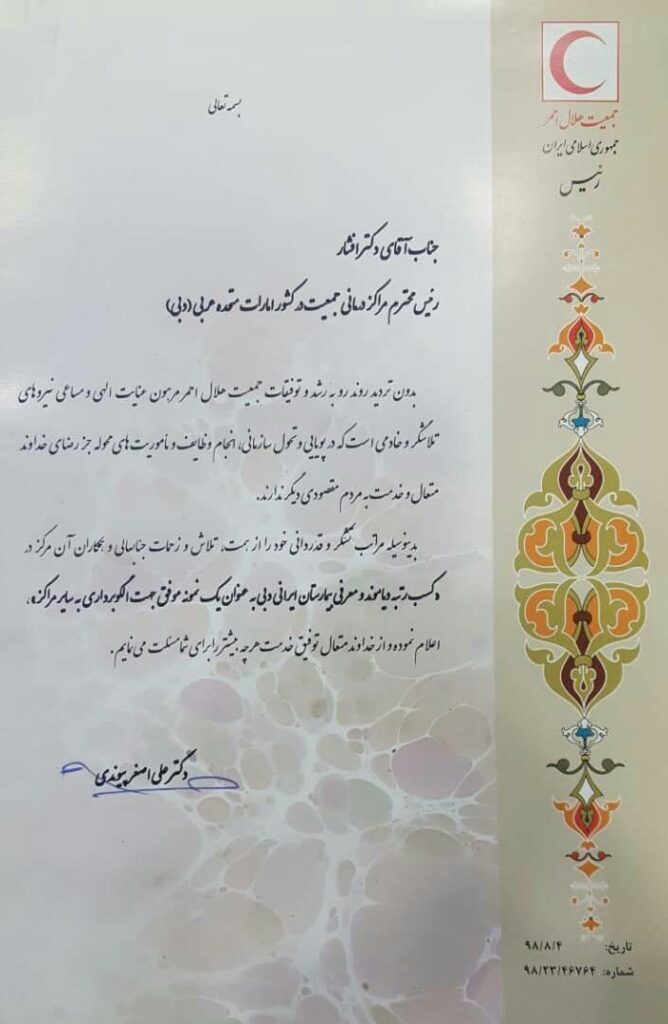 جمعیت هلال احمر
جمهوری اسلامی ایران
رئیس
بسمه تعالی
جناب آقای دکتر افشار
رئیس محترم مراکز درمانی جمعیت در کشور امارات متحده عربی (دبی)
بدون تردید روند رو به رشد و توفیقات جمعیت هلال احمر مرهون عنایت الهی و مساعی نیروهای
تلاشگر و خادمی است که در پویایی و تحول سازمانی، انجام وظایف و مأموریت های محوله جز رضای خداوند
متعال و خدمت به مردم مقصودی دیگر ندارند.
بدینوسیله مراتب تشکر و قدردانی خود را از همت، تلاش و زحمات جنابعالی و همکاران آن مرکز در
«کسب رتبه دیاموند و معرفی بیمارستان ایرانی دبی به عنوان یک نمونه موفق جهت الگوبرداری به سایر مراکز»،
اعلام نموده و از خداوند متعال توفیق خدمت هرچه بیشتر را برای شما مسئلت می نمایم.
دکتر علی اصغر پیوندی
تاریخ: ۹۸/۸/۴
شماره: ۹۸/۲۳/۴۶۷۶۴